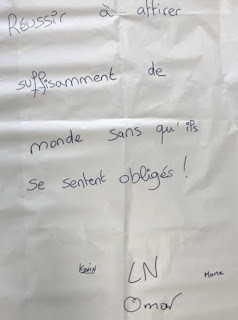 Réussir à attirer
suffisamment de
monde sans qu'ils
se sentent obligés !
Kevin LN Marie
Omar